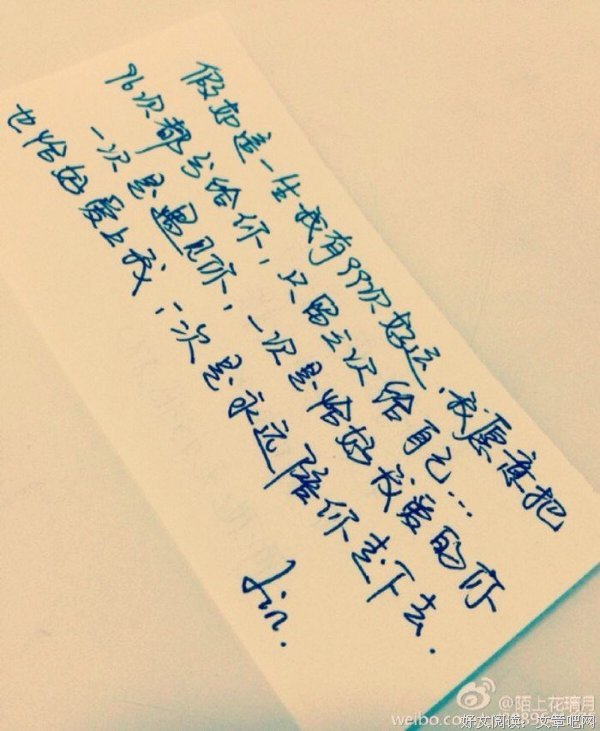 假如這一生我有99次好运，我愿意把
96次都分给你，只留三次给自己…
一次是遇见你，一次是恰好我爱的你
也恰好爱上我，一次是永远陪你走下去.
Jin.
@陌上花璃月
weibo.com
好文阅读：文章吧网